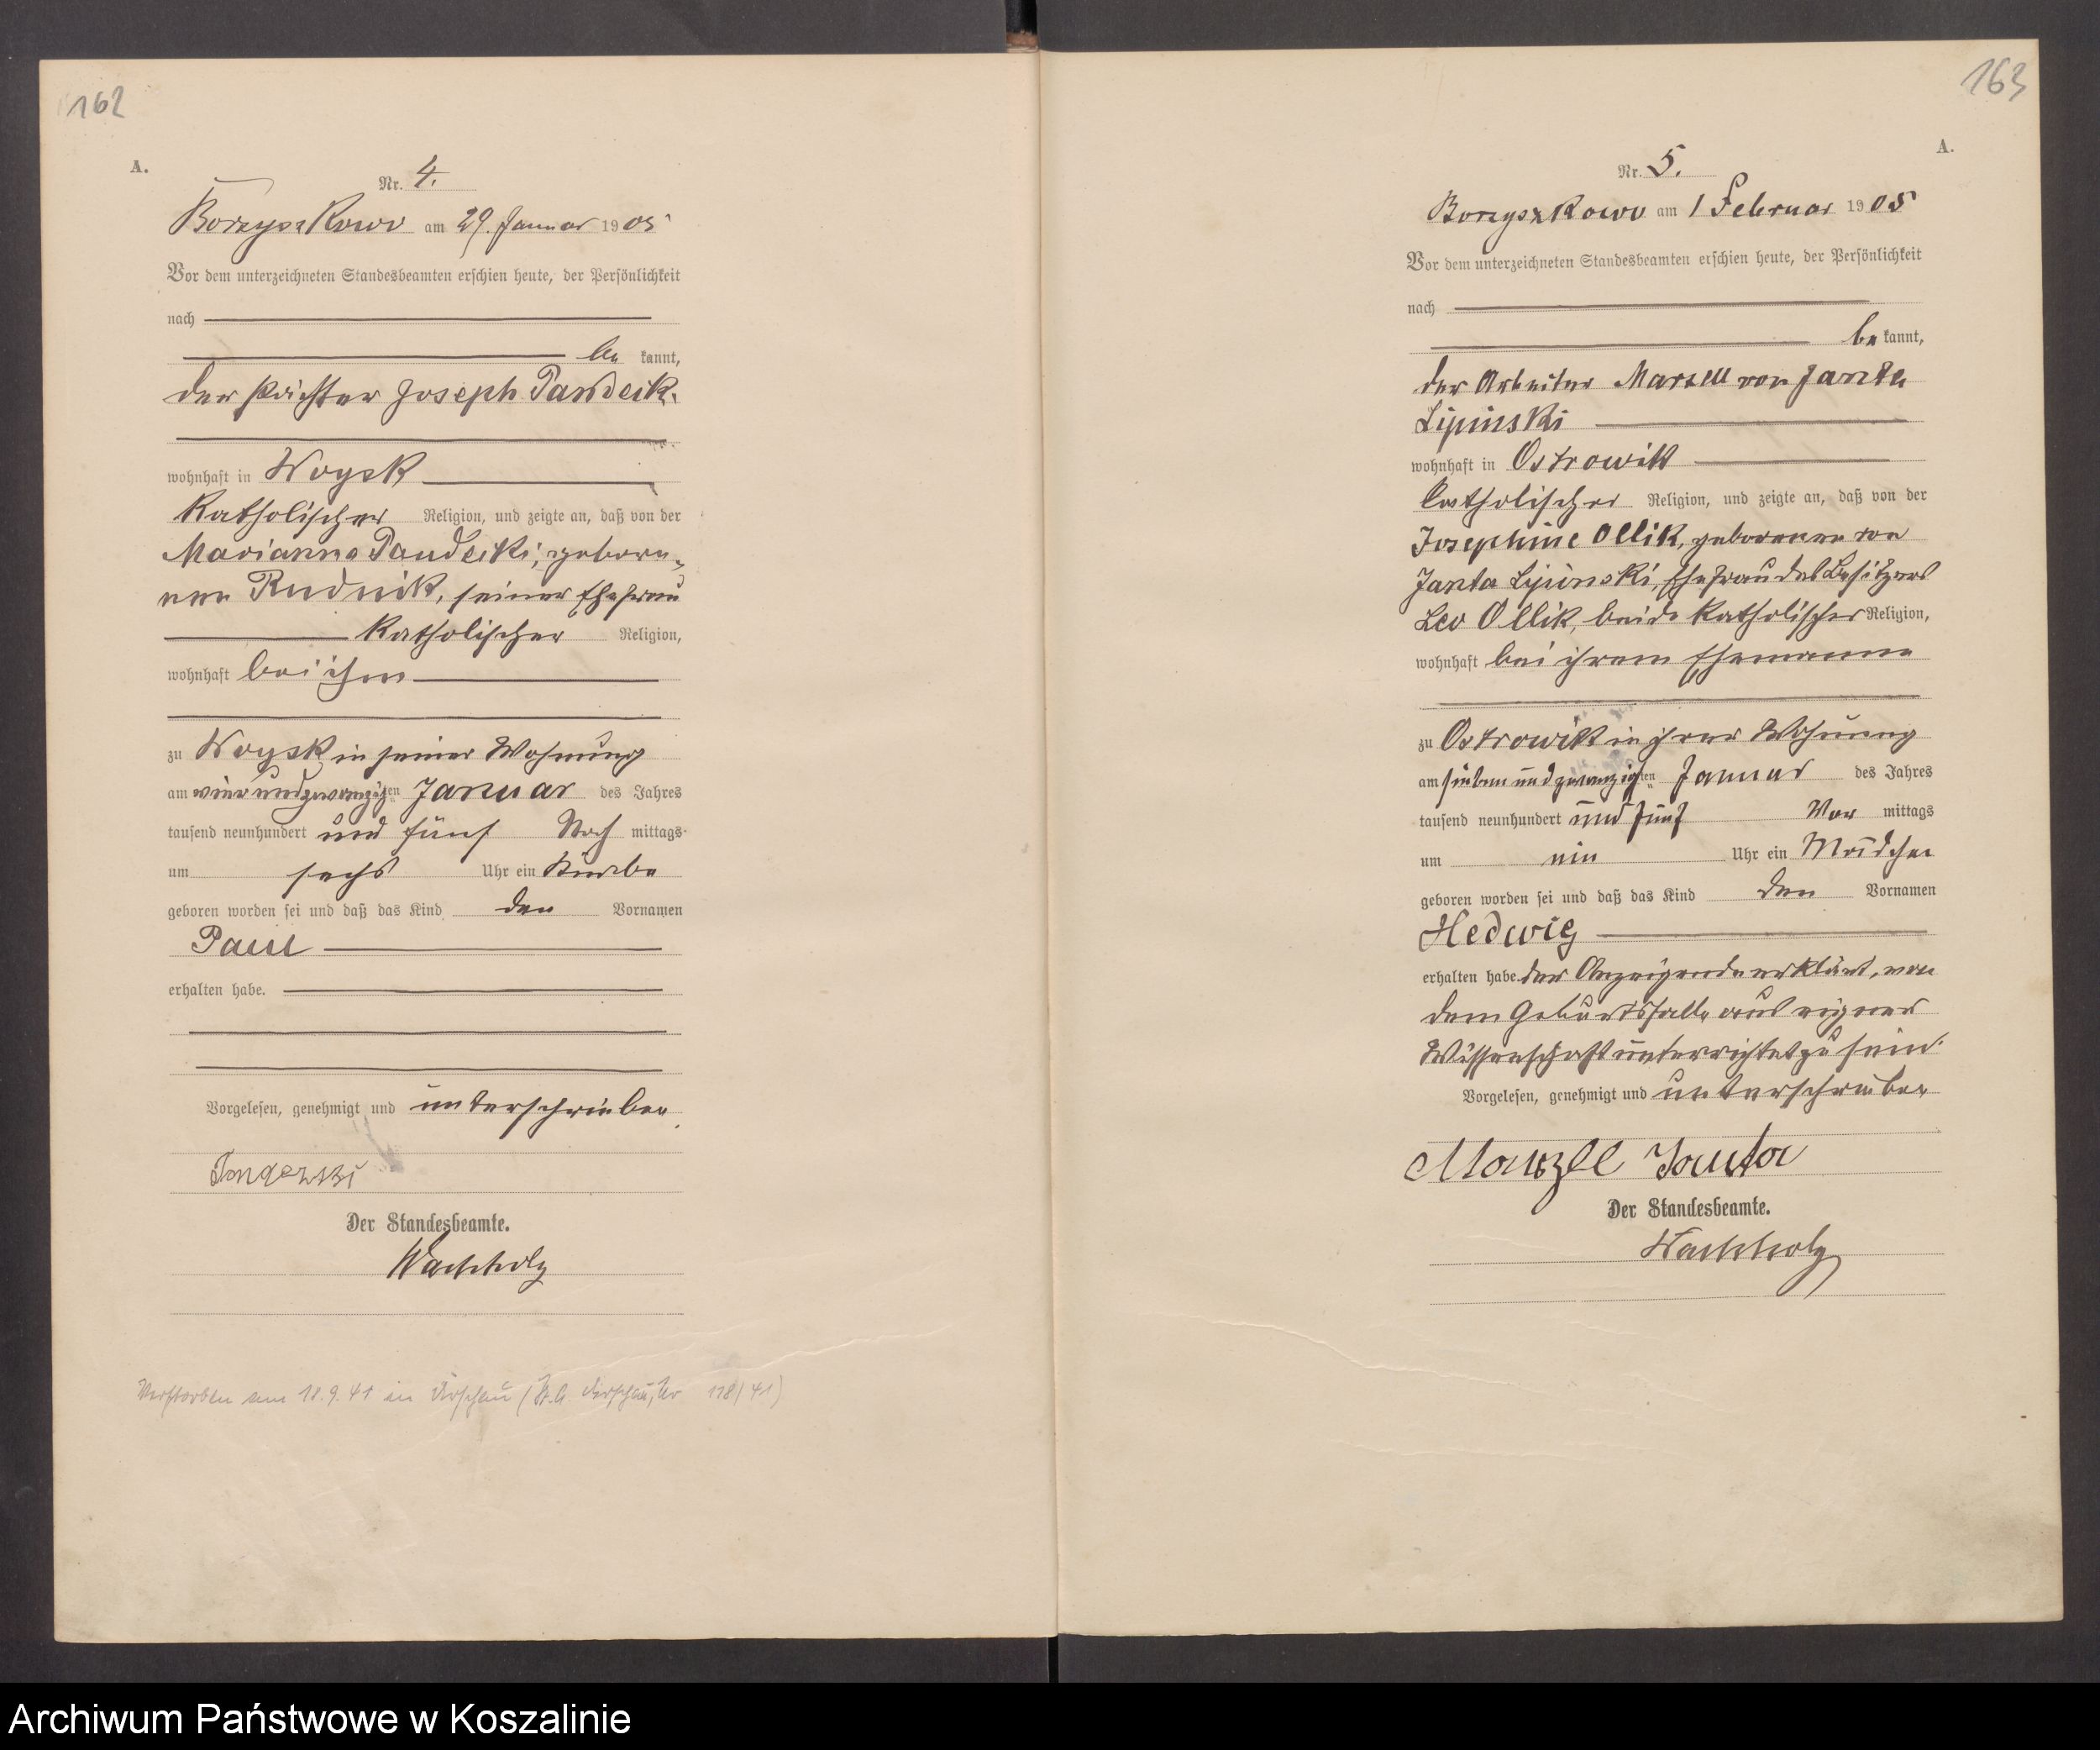 162
A.
Nr. 4.
Borzyszkowo am 29. Januar 1905
Vor dem unterzeichneten Standesbeamten erschien heute, der Persönlichkeit
nach
be kannt,
der Pächter Joseph
wohnhaft in Woysk
katholischer Religion, und zeigte an, daß von der
Marianna geborne-
nen Rudnik, seiner Ehefrau
katholischer Religion,
wohnhaft bei ihm
zu Woysk in seiner Wohnung
am vier und zwanzigsten Januar des Jahres
tausend neunhundert und fünf Nach mittags
um sechs Uhr ein Knabe
geboren worden sei und daß das Kind den Vornamen
Paul
erhalten habe.
Vorgelesen, genehmigt und unterschrieben
Der Standesbeamte.
Wachholz
Verstorben am 18.9.41 in Dirschau (St. A. Dirschau, Nr 118/41)
163
A.
Nr. 5.
Borzyszkowo am 1 Februar 1905
Vor dem unterzeichneten Standesbeamten erschien heute, der Persönlichkeit
nach
be kannt,
der Arbeiter Marzell von Janta
Lipinski
wohnhaft in Ostrowitt
katholischer Religion, und zeigte an, daß von der
Josephine Ollik, geborenen von
Janta Lipinski, Ehefrau des Besitzers
Leo Ollik, beide katholischer Religion,
wohnhaft bei ihrem Ehemanne
zu Ostrowitt in ihrer Wohnung
am sieben und zwanzigsten Januar des Jahres
tausend neunhundert und fünf Vor mittags
um ein Uhr ein Mädchen
geboren worden sei und daß das Kind den Vornamen
Hedwig
erhalten habe. Der Anzeigende erklärt, von
dem Geburtsfalle aus eigener
Wissenschaft unterrichtet zu sein.
Vorgelesen, genehmigt und unterschrieben
Marzell Janta
Der Standesbeamte.
Wachholz
Archiwum Państwowe w Koszalinie